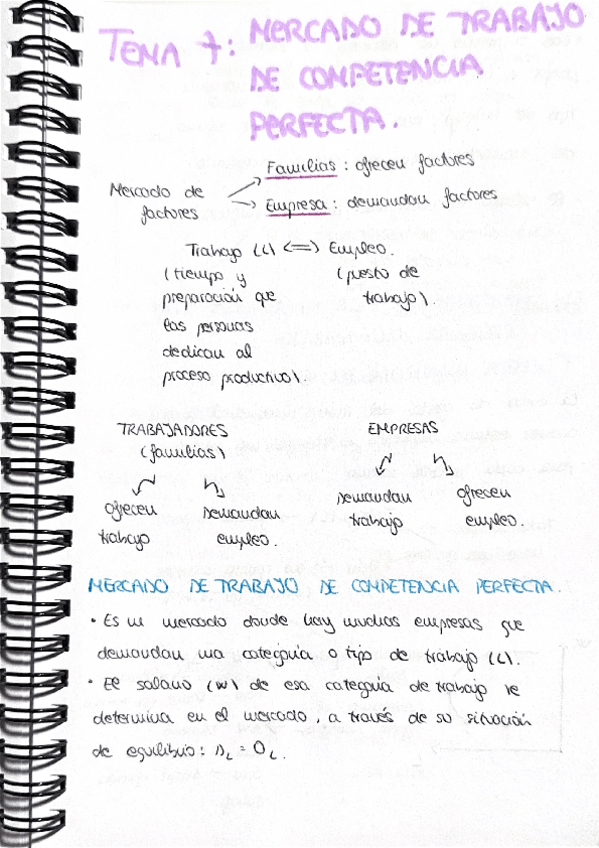 TEMA 7: MERCADO DE TRABAJO
DE COMPETENCIA
PERFECTA.
Mercado de factores
Familias: ofrecen factores
Empresa: demandan factores
Trabajo (L) <=> Empleo.
(tiempo y
preparación que
las personas
dedican al
proceso productivo).
(puesto de
trabajo).
TRABAJADORES
(familias)
ofrecen
trabajo
demandan
empleo.
EMPRESAS
demandan
trabajo
ofrecen
empleo.
MERCADO DE TRABAJO DE COMPETENCIA PERFECTA.
· Es un mercado donde hay muchas empresas que
demandan una categoría o tipo de trabajo (L).
· El salario (w) de esa categoría de trabajo se
determina en el mercado, a través de su situación
de equilibrio: DL = OL.